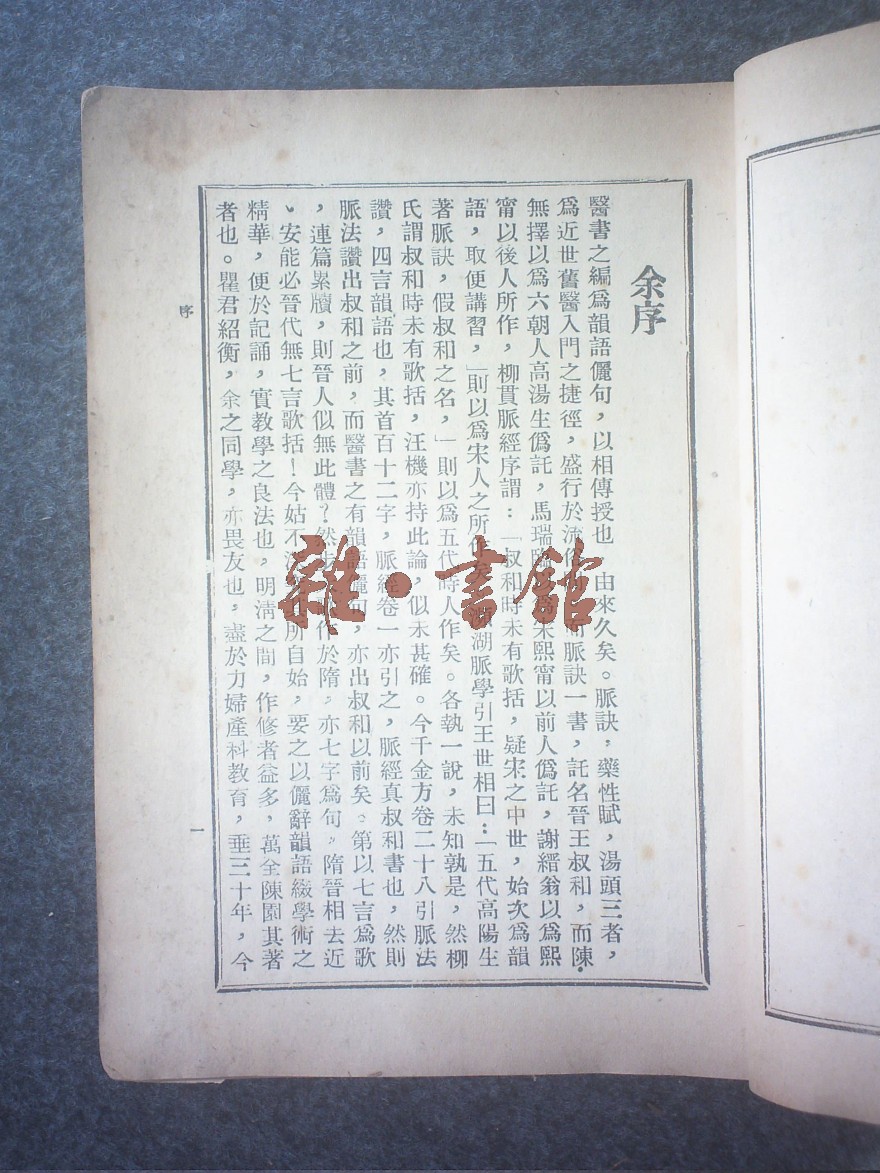 余序
醫書之編爲韻語儷句，以相傳授也，由來久矣。脈訣，藥性賦，湯頭三者，
爲近世舊醫入門之捷徑，盛行於流俗脈訣一書，託名晉王叔和，而陳
無擇以爲六朝人高湯生僞託，馬瑞熙甯以前人僞託，謝縉翁以爲熙
甯以後人所作，柳貫脈經序謂：「叔和時未有歌括，疑宋之中世，始次爲韻
語，取便講習，」則以爲宋人之所湖脈學引王世相曰：「五代高陽生
著脈訣，假叔和之名，」則以爲五代時人作矣。各執一說，未知孰是，然柳
氏謂叔和時未有歌括，汪機亦持此論，似未甚確。今千金方卷二十八引脈法
讚，四言韻語也，其首百十二字，脈經卷一亦引之，脈經真叔和書也，然則
脈法讚出叔和之前，而醫書之有韻語儷句，亦出叔和以前矣。第以七言爲歌
，連篇累牘，則晉人似無此體？然作於隋，亦七字爲句，隋晉相去近
、安能必晉代無七言歌括！今姑不所自始，要之以儷辭韻語綴學術之
精華，便於記誦，實教學之良法也，明淸之間，作修者益多，萬全陳園其著
者也。瞿君紹衡，余之同學，亦畏友也，盡於力婦產科教育，垂三十年，今
序
一
雜·書館